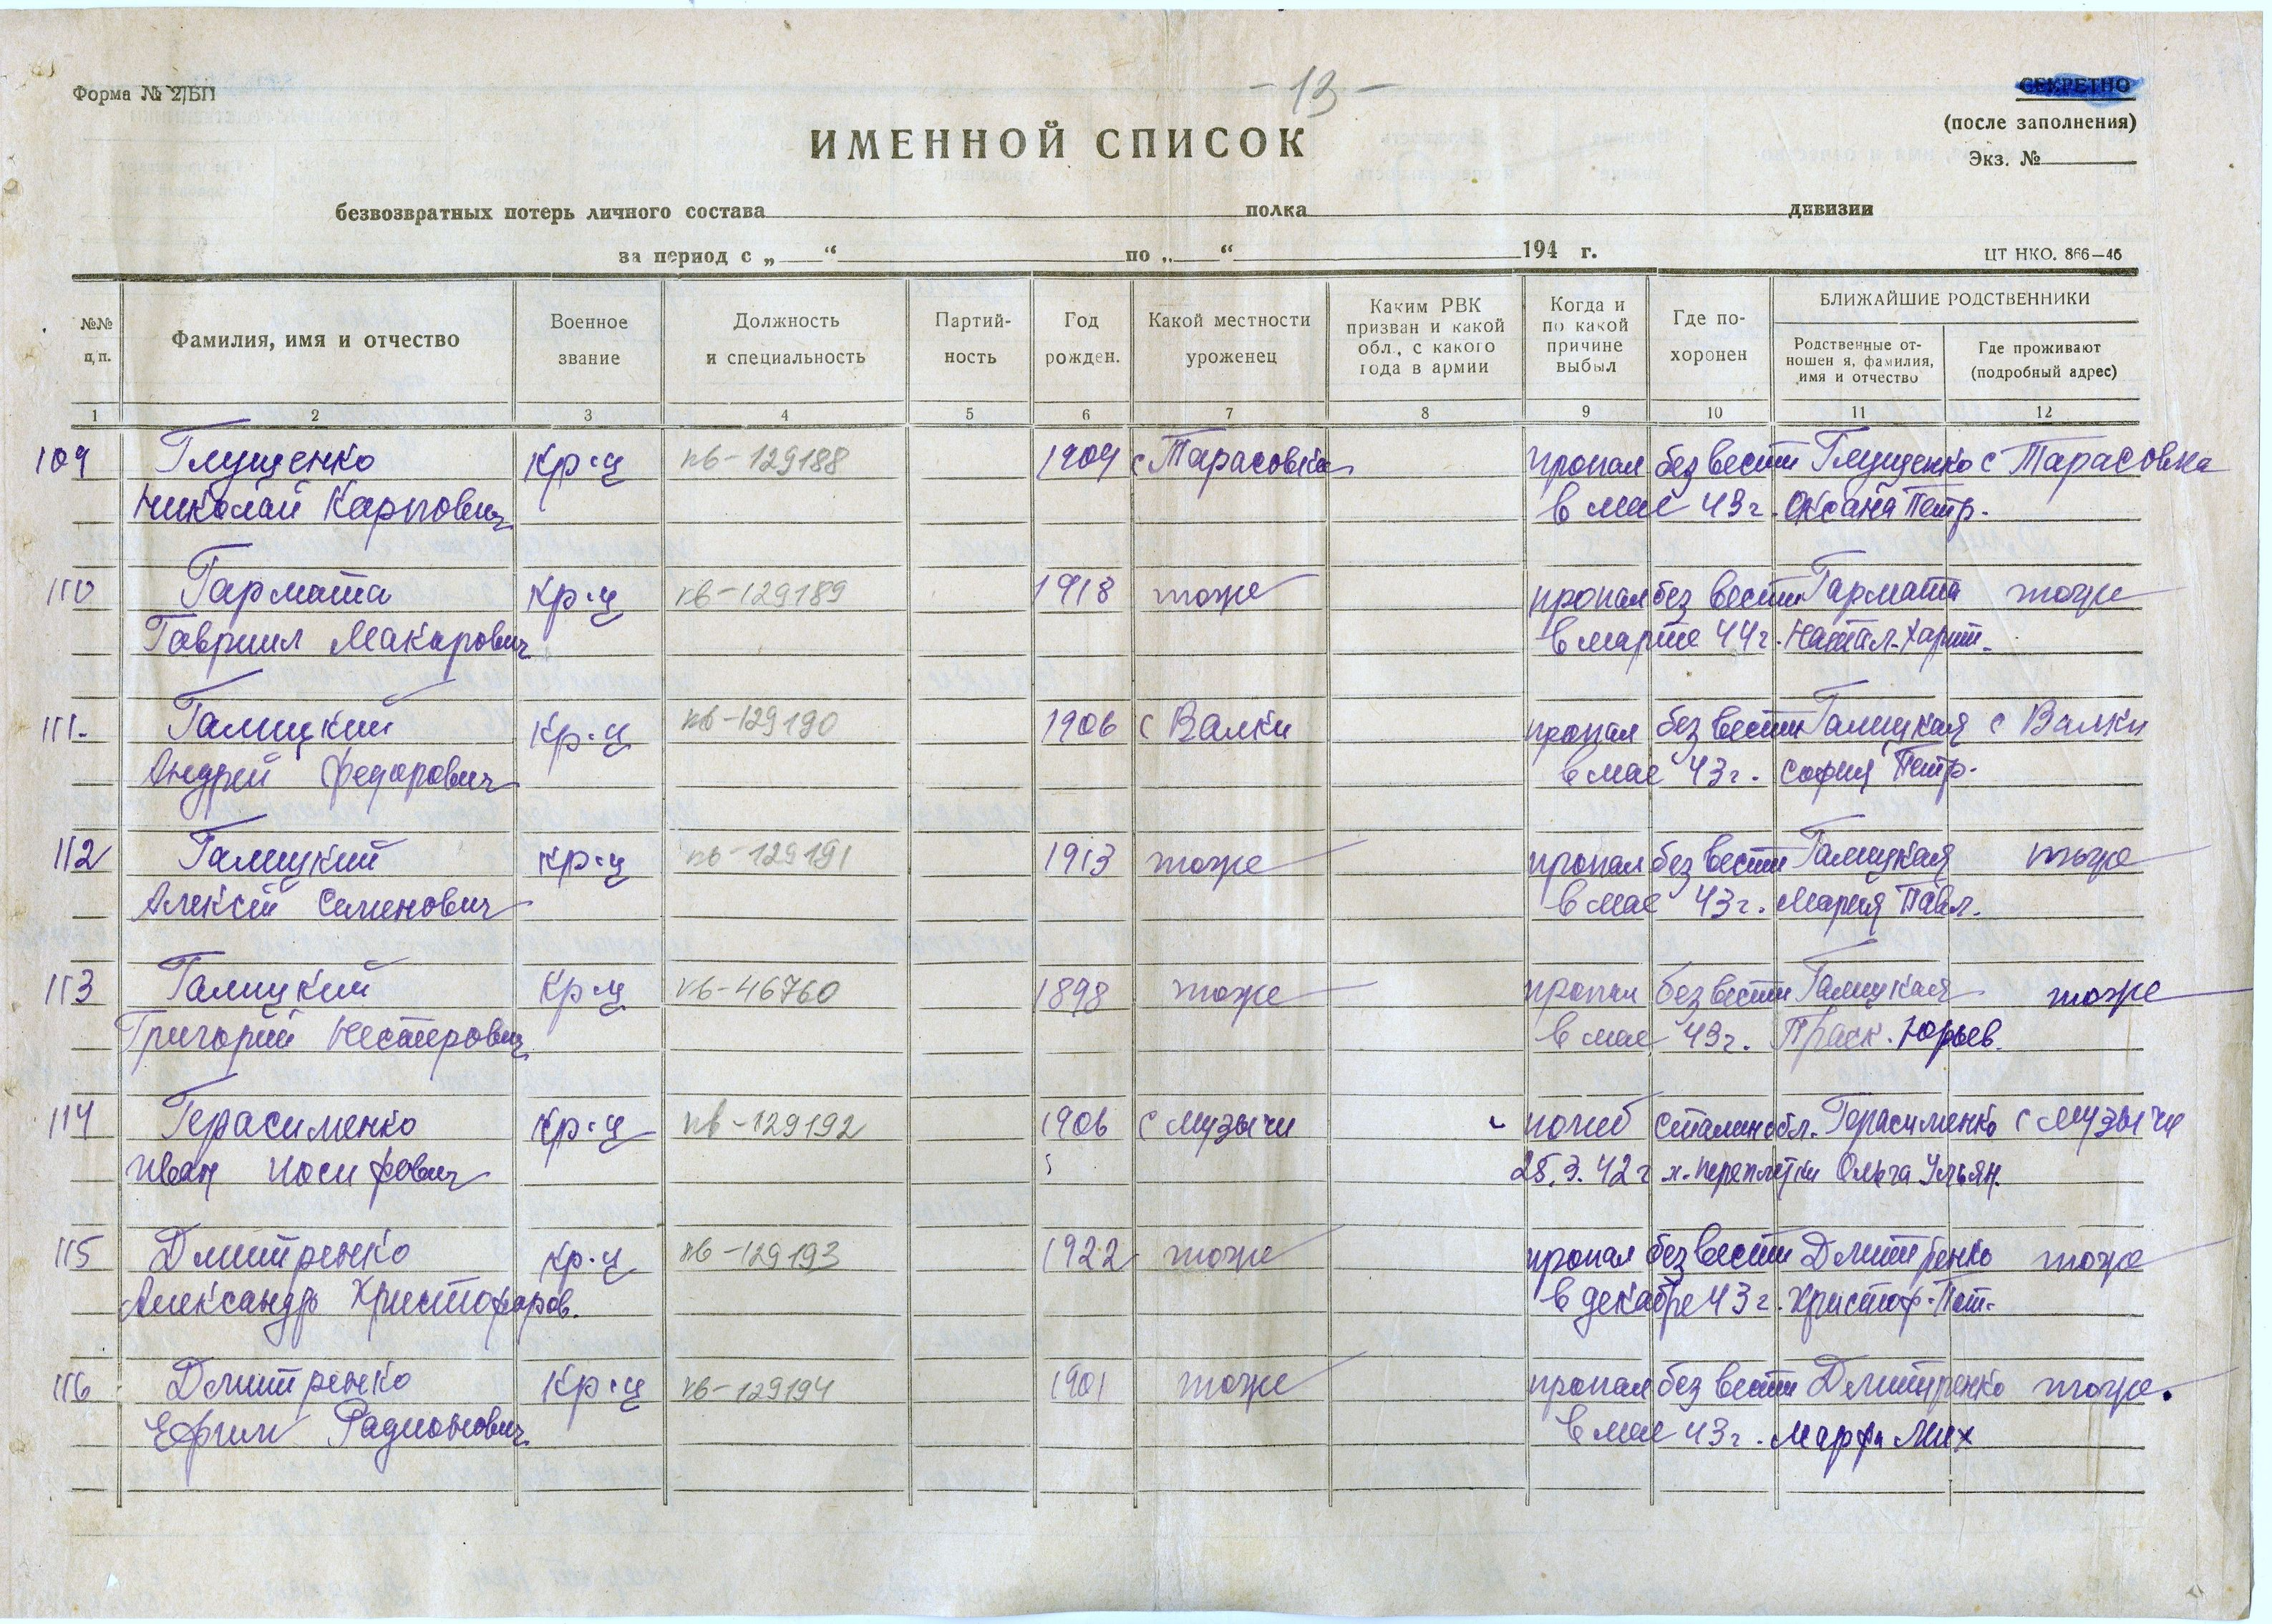 - 13 -
Форма № 2/БП
СЕКРЕТНО
(после заполнения)
Экз. №
ИМЕННОЙ СПИСОК
безвозвратных потерь личного состава полка дивизии
за период с „ “ по „ “ 194 г.
ЦТ НКО. 866—46
№№ п,п.
Фамилия, имя и отчество
Военное звание
Должность и специальность
Партий-ность
Год рожден.
Какой местности уроженец
Каким РВК призван и какой обл., с какого года в армии
Когда и по какой причине выбыл
Где по-хоронен
БЛИЖАЙШИЕ РОДСТВЕННИКИ
Родственные от-ношен я, фамилия, имя и отчество
Где проживают (подробный адрес)
1 2 3 4 5 6 7 8 9 10 11 12
109 Глущенко кр-ц пв-129188 1909 с Тарасовка пропал без вести Глущенко с Тарасовка
Николай Карпович в мае 43 г. Оксана Петр.
110 Гармата кр-ц пв-129189 1918 тоже пропал без вести Гармата тоже
Гавриил Макарович в марте 44 г. Натал. Харит.
111. Галицкий кр-ц пв-129190 1906 с Валки пропал без вести Галицкая с Валки
Андрей Федорович в мае 43 г. София Петр.
112 Галицкий кр-ц пв-129191 1913 тоже пропал без вести Галицкая тоже
Алексей Семенович в мае 43 г. Мария Павл.
113 Галицкий кр-ц пв-46760 1898 тоже пропал без вести Галицкая тоже
Григорий Нестерович в мае 43 г. Праск. Юрьев.
114 Герасименко кр-ц пв-129192 1906 с Музычи погиб Сталин обл. Герасименко с Музычи
Иван Иосифович 25.3.42 г х. Переплетки Ольга Ульян.
115 Дмитренко кр-ц пв-129193 1922 тоже пропал без вести Дмитренко тоже
Александр Христофоров. в декабре 43 г. Христоф. Пот.
116 Дмитренко кр-ц пв-129194 1901 тоже пропал без вести Дмитренко тоже.
Ефрим Радионович в мае 43 г. Марфа Мих